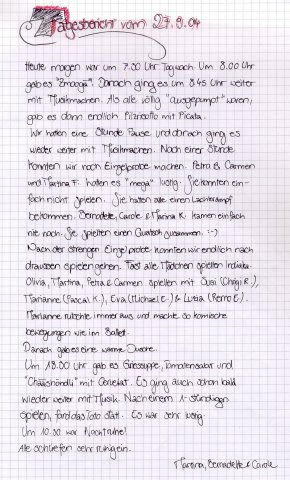 Tagesbericht vom 27.9.04
Heute morgen war um 7.30 Uhr Tagwach. Um 8.00 Uhr
gab es Zmorge. Danach ging es um 8.45 Uhr weiter
mit Musikmachen. Als alle völlig "ausgepumpt" waren,
gab es dann endlich Pilzrisotto mit Picata.
Wir hatten eine Stunde Pause und danach ging es
wieder weiter mit Musikmachen. Nach einer Stunde
konnten wir noch Einzelprobe machen. Petra & Carmen
und Martina F. hatten es "mega" lustig. Sie konnten ein-
fach nicht spielen. Sie hatten alle einen Lachkrampf
bekommen. Bernadette, Carole & Martina K. kamen einfach
nie nach. Sie spielten einen Quatsch zusammen. :-)
Nach der strengen Einzelprobe konnten wir endlich nach
draussen spielen gehen. Fast alle Mädchen spielten Indiaka.
Olivia, Martina, Petra & Carmen spielten mit Susi (Chrigi R.),
Marianne (Pascal K.), Eva (Michael E.) & Luzia (Remo E.).
Marianne rutschte immer aus und machte so komische
bewegungen wie im Ballet.
Danach gab es eine warme Dusche.
Um 18.00 Uhr gab es Griessuppe, Tomatensalat und
"Chäashöndli" mit Cervelat. Es ging auch schon bald
wieder weiter mit Musik. Nach einem 1-stündigen
spielen, fand das Toto statt. Es war sehr lustig.
Um 10.30 war Nachtruhe!
Alle schliefen sehr ruhig ein.
Martina, Bernadette & Carole